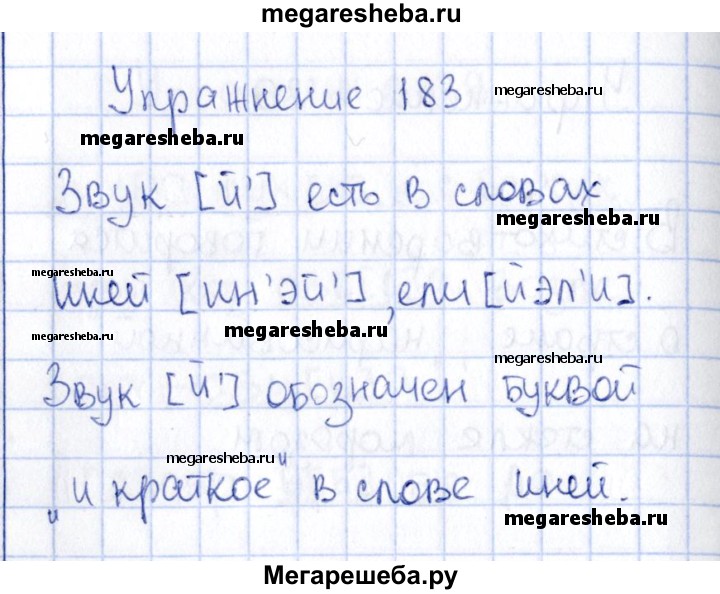 megaresheba.ru
Упражнение 183
megaresheba.ru
megaresheba.ru
Звук [й'] есть в словах
megaresheba.ru
megaresheba.ru
иней [ин'эй'], ели [йэл'и].
megaresheba.ru
megaresheba.ru
megaresheba.ru
Звук [й'] обозначен буквой
megaresheba.ru
"и краткое" в слове иней.
megaresheba.ru
Мегарешеба.ру